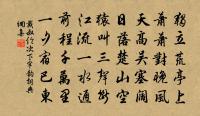 獨立荒亭上
蕭蕭對晚風
天高吳塞闊
日落楚山空
猿叫三聲斷
江流一水通
前程千萬里
一夕宿巴東
戴叔倫次下牢韻詞典
網集